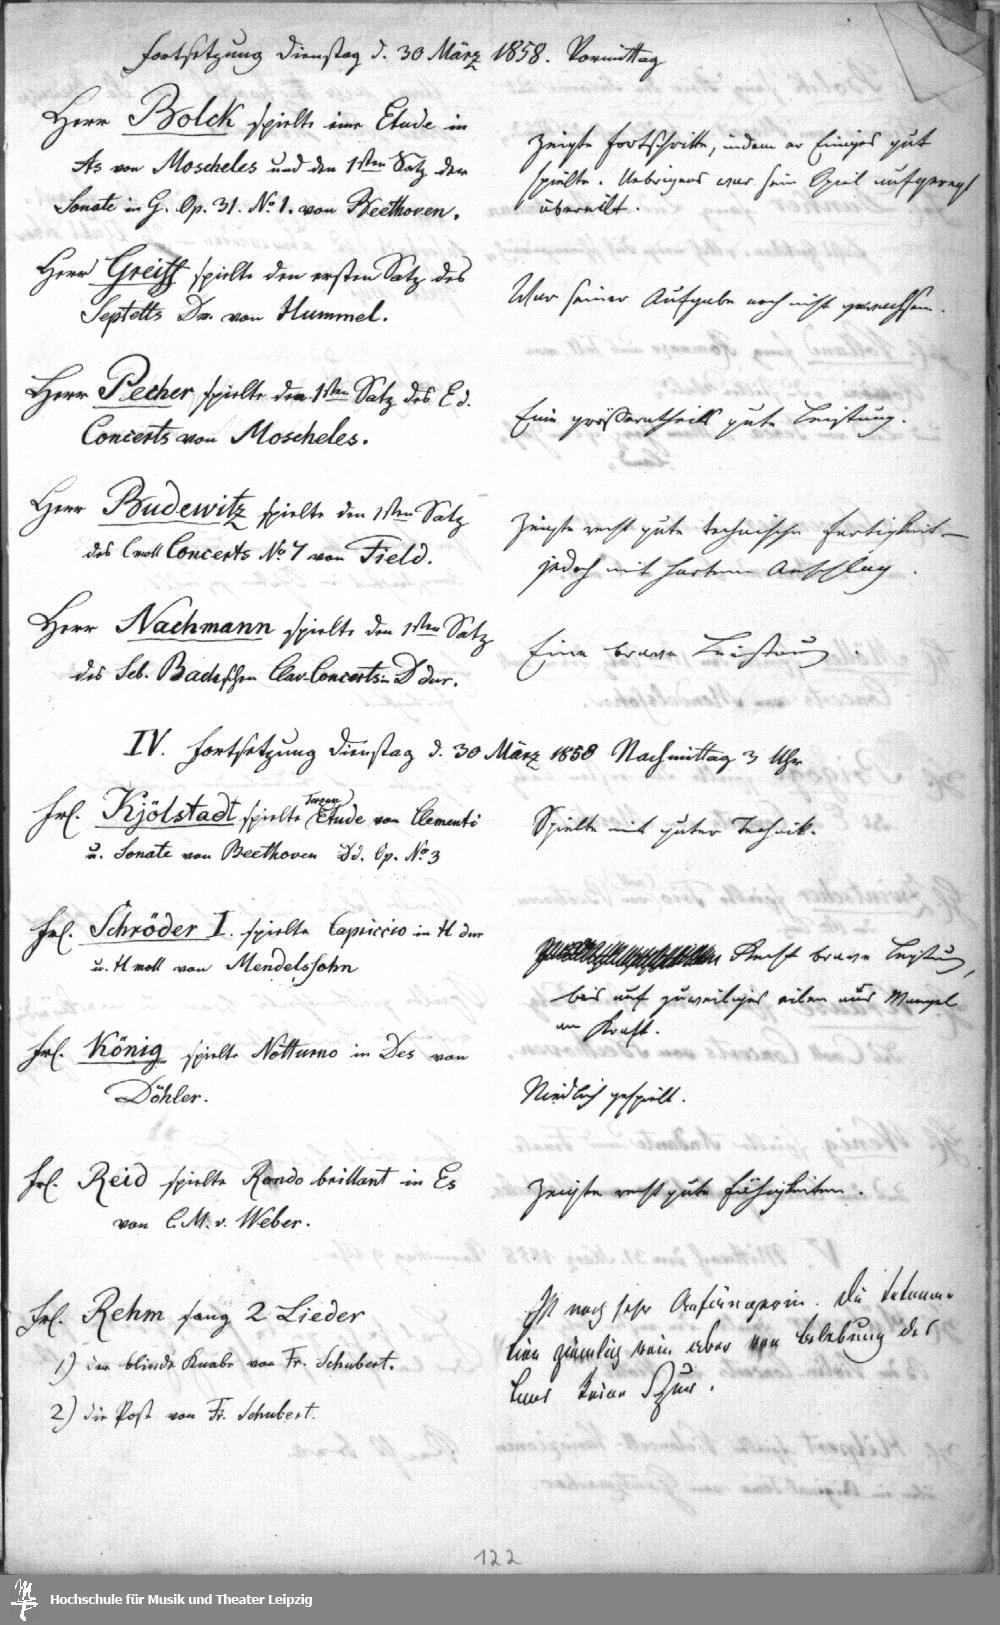 Fortsetzung Dienstag d. 30 März 1858. Vormittag
Herr Bolck spielte eine Etude in
As von Moscheles und den 1sten Satz der
Sonate in G. Op. 31. No 1. von Beethoven.
Zeigte Fortschritte, indem er Einiges gut
spielte. Uebrigens war sein Spiel aufgeregt
übereilt.
Herr Greiff spielte den ersten Satz des
Septetts Dm. von Hummel.
War seiner Aufgabe noch nicht gewachsen.
Herr Pecher spielte den 1sten Satz des E d.
Concerts von Moscheles.
Eine grösserntheils gute Leistung.
Herr Budewitz spielte den 1sten Satz
des Cmoll Concerts No 7 von Field.
Zeigte recht gute technische Fertigkeit —
jedoch mit hartem Anschlag.
Herr Nachmann spielte den 1sten Satz
des Seb. Bachschen Clav. Concerts in D dur.
Eine brave Leistung.
IV. Fortsetzung Dienstag d. 30 März 1858 Nachmittag 3 Uhr
Frl. Kjölstadt spielte Etude von Clementi
u. Sonate von Beethoven Dd. Op. No 3
Spielte mit guter Technik.
Frl. Schröder I. spielte Capriccio in H dur
u. H moll von Mendelssohn
Recht brave Leistung,
bis auf zuweiliges eilen aus Mangel
an Kraft.
Frl. König spielte Notturno in Des von
Döhler.
Niedlich gespielt.
Frl. Reid spielte Rondo brillant in Es
von C. M. v. Weber.
Zeigte recht gute Fähigkeiten.
Frl. Rehm sang 2 Lieder
1) der blinde Knabe von Fr. Schubert.
2) die Post von Fr. Schubert.
Ist noch sehr Anfängerin. Die Intona-
tion ziemlich rein aber von Belebung des
Tons keine Spur.
122
Hochschule für Musik und Theater Leipzig